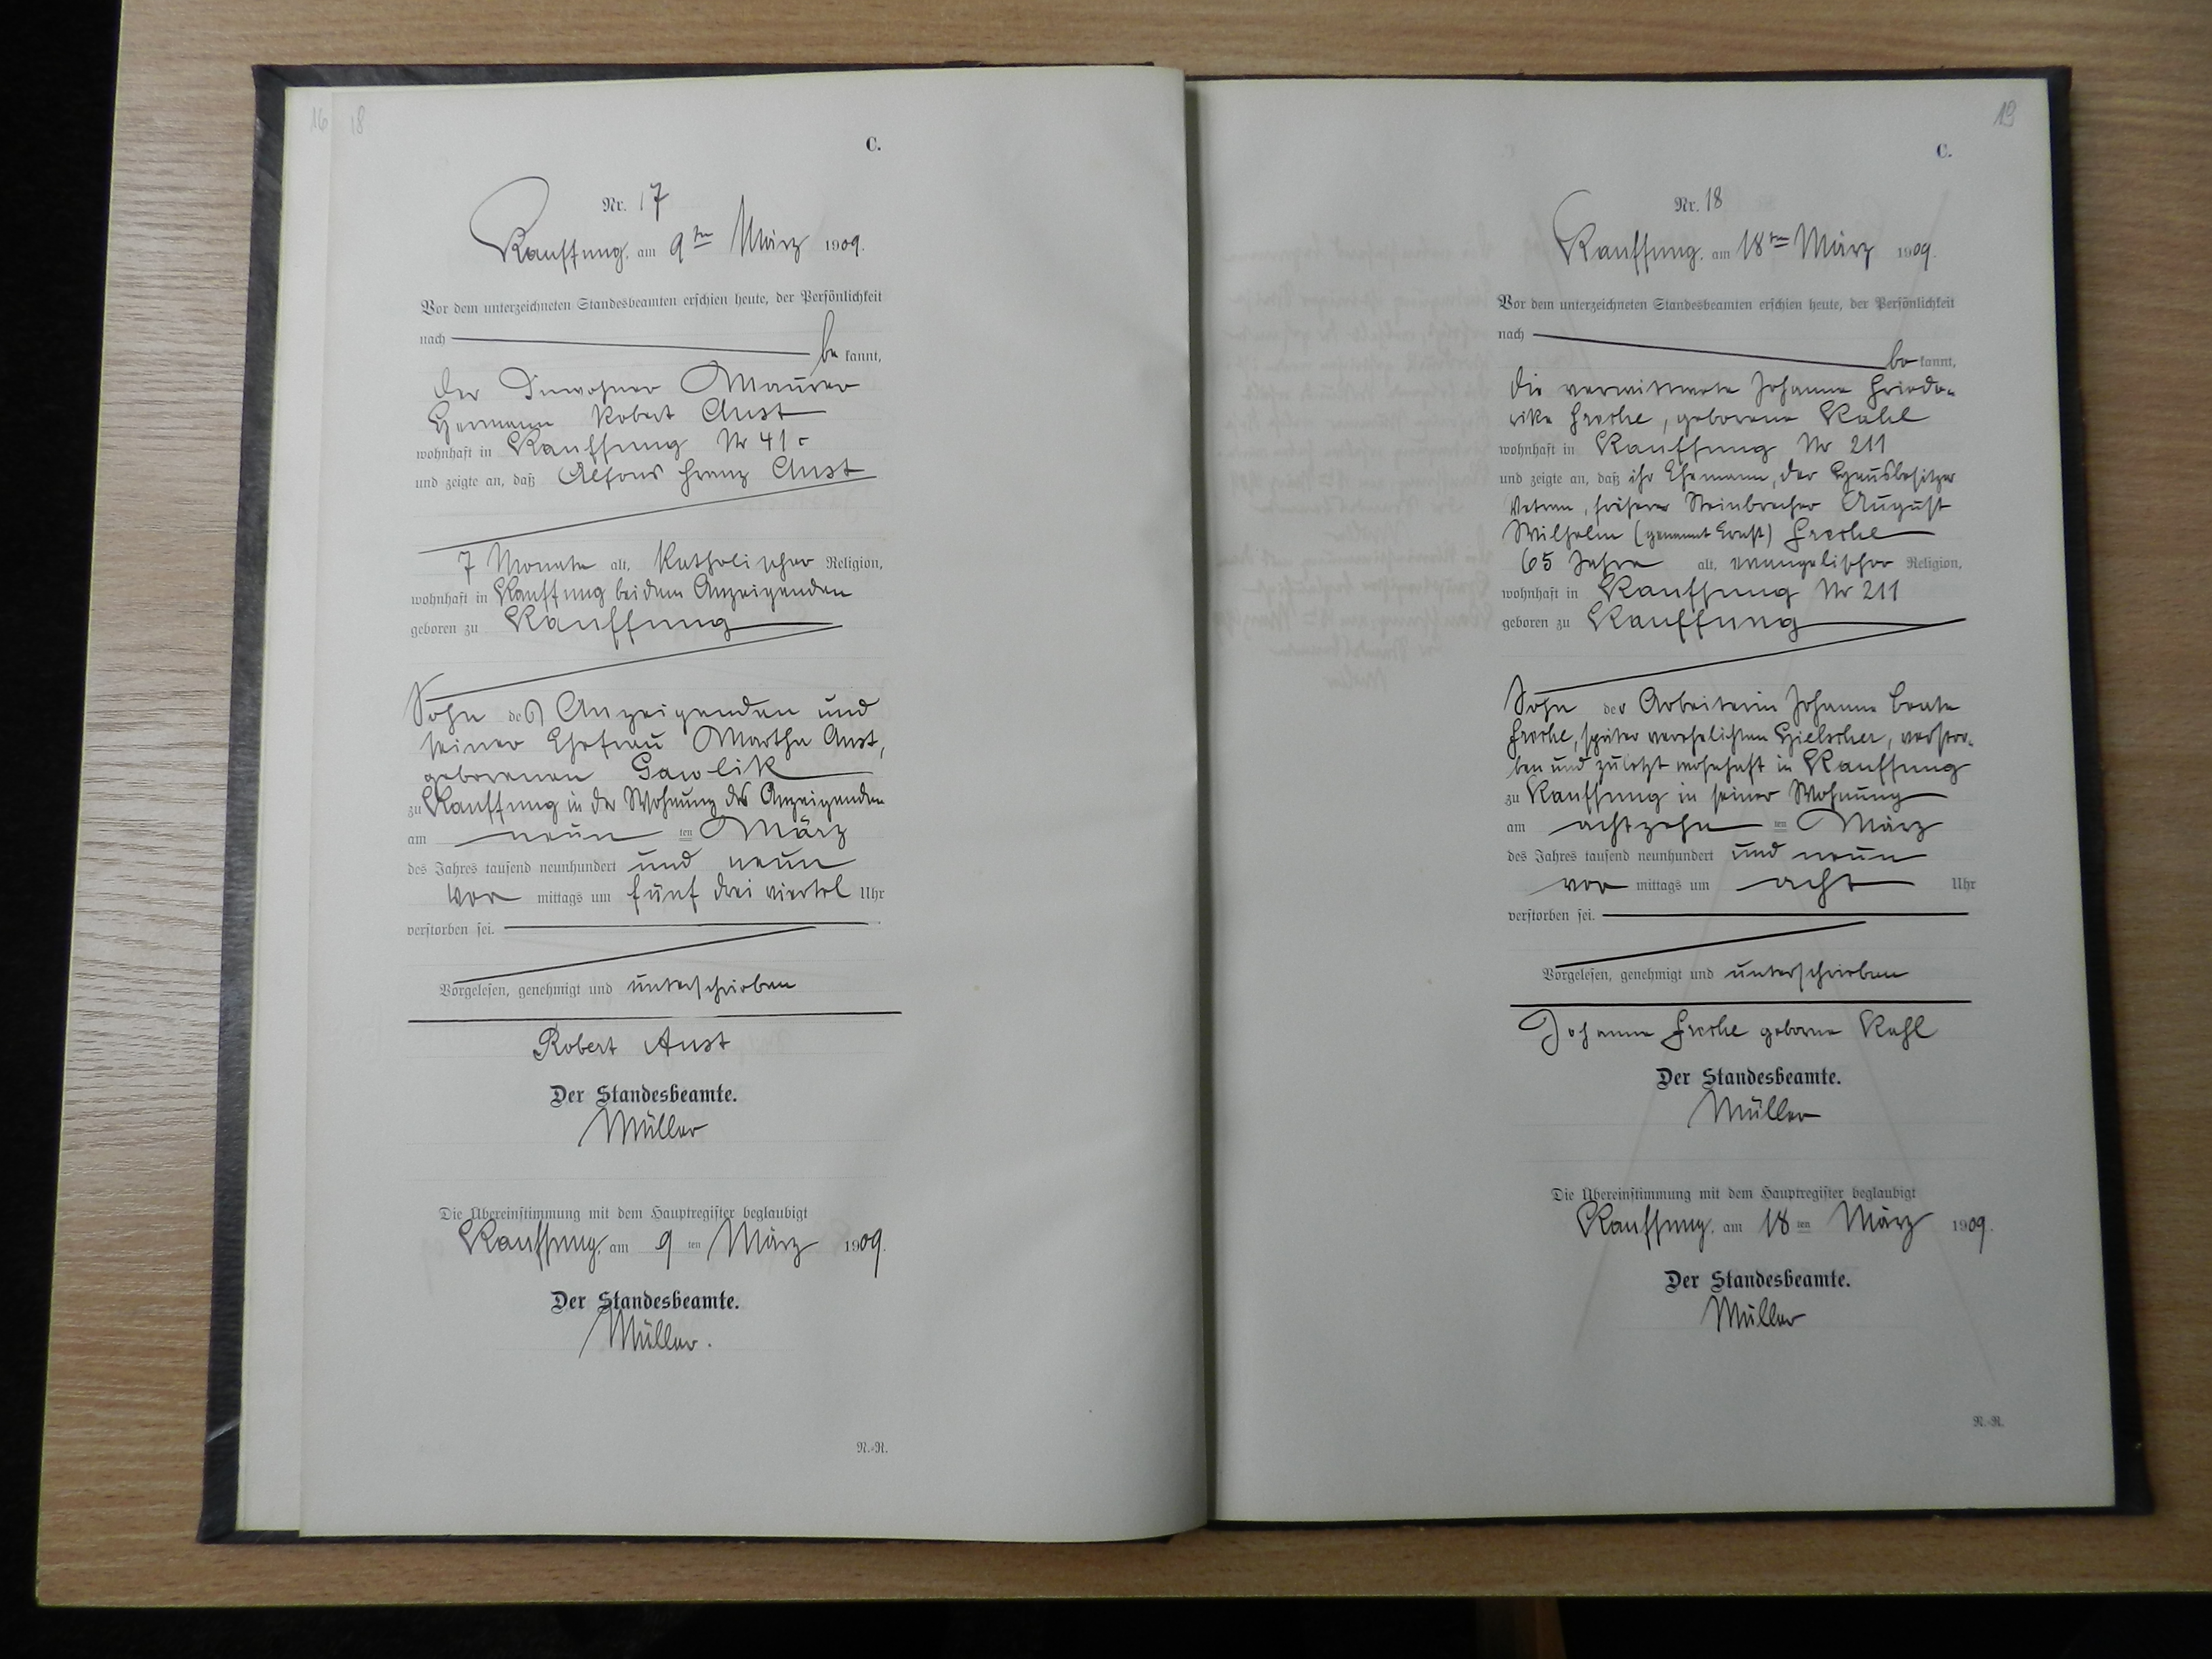 16 18
C.
Nr. 17
Kauffung, am 9ten März 1909.
Vor dem unterzeichneten Standesbeamten erschien heute, der Persönlichkeit
nach be kannt,
der Inwohner Maurer
Hermann Robert Aust
wohnhaft in Kauffung Nr 41c
und zeigte an, daß Alfons Franz Aust
7 Monate alt, Katholischer Religion,
wohnhaft in Kauffung bei dem Anzeigenden
geboren zu Kauffung
Sohn des Anzeigenden und
seiner Ehefrau Martha Aust,
geborenen Gawlik
zu Kauffung in der Wohnung des Anzeigenden
am neun ten März
des Jahres tausend neunhundert und neun
Vor mittags um fünf drei viertel Uhr
verstorben sei.
Vorgelesen, genehmigt und unterschrieben
Robert Aust
Der Standesbeamte.
Müller
Die Übereinstimmung mit dem Hauptregister beglaubigt
Kauffung, am 9 ten März 1909.
Der Standesbeamte.
Müller.
N.-R.
19
C.
Nr. 18
Kauffung, am 18ten März 1909.
Vor dem unterzeichneten Standesbeamten erschien heute, der Persönlichkeit
nach be kannt,
die verwittwete Johanne Friede-
rike Freche, geborene Kahl
wohnhaft in Kauffung Nr 211
und zeigte an, daß ihr Ehemann, der Hausbesitzer
Veteran, früherer Steinbrecher August
Wilhelm (genannt Ernst) Freche
65 Jahre alt, evangelischer Religion,
wohnhaft in Kauffung Nr 211
geboren zu Kauffung
Sohn der Arbeiterin Johanne Beate
Freche, später verehelichten Hielscher, verstor-
ben und zuletzt wohnhaft in Kauffung
zu Kauffung in seiner Wohnung
am achtzehn ten März
des Jahres tausend neunhundert und neun
vor mittags um acht Uhr
verstorben sei.
Vorgelesen, genehmigt und unterschrieben
Johanne Freche geborne Kahl
Der Standesbeamte.
Müller
Die Übereinstimmung mit dem Hauptregister beglaubigt
Kauffung, am 18 ten März 1909.
Der Standesbeamte.
Müller
N.-R.